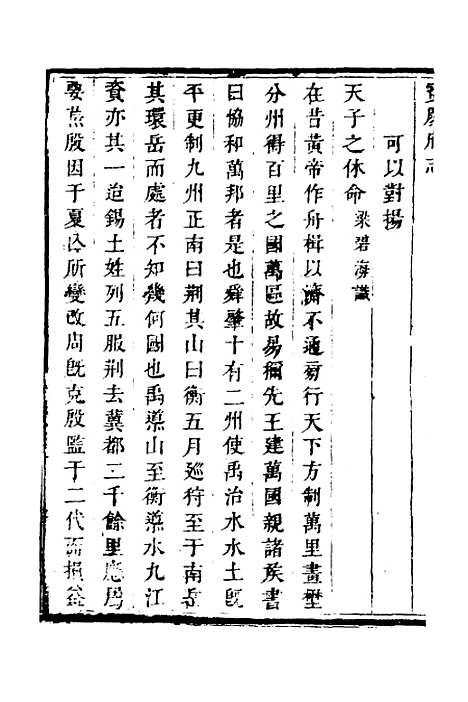 寶慶府志
可以對揚
天子之休命梁碧海識
在昔黃帝作舟楫以濟不通旁行天下方制萬里畫壄
分州得百里之國萬區故易稱先王建萬國親諸矦書
曰協和萬邦者是也舜肇十有二州使禹治水水土旣
平更制九州正南曰荆其山曰衡五月巡狩至于南岳
其環岳而處者不知幾何國也禹導山至衡導水九江
賚亦其一迨錫土姓列五服荆去冀都二千餘里應爲
要荒殷因于夏亾所變改周旣克殷監于二代而損益